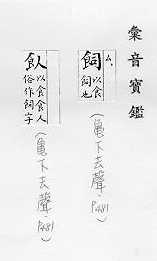 彙音寶鑑
飼 以食飼也
(龜下去聲, P481)
飤 以食食人俗作飼字
(龜下去聲 P481)